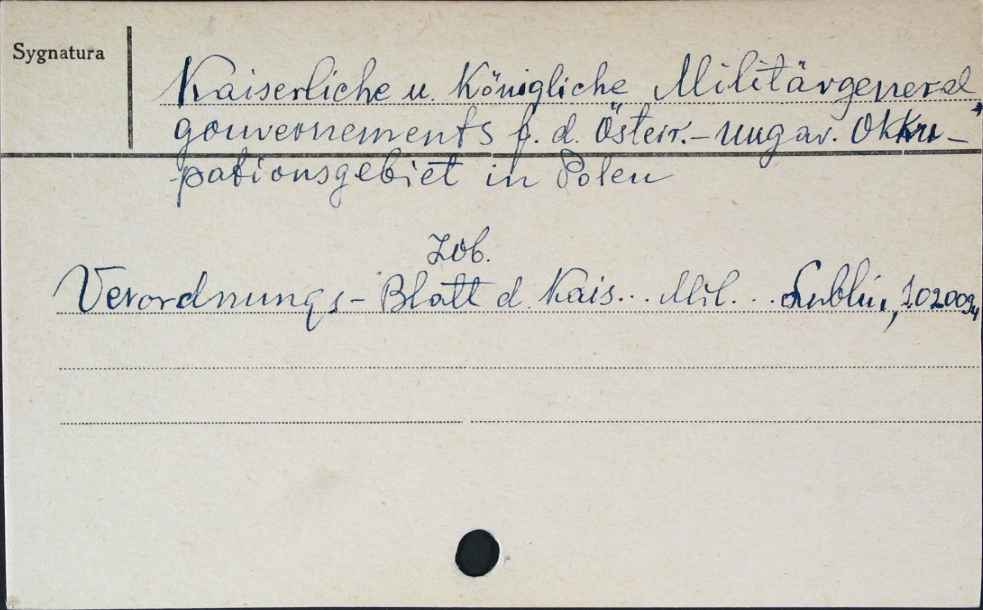 Sygnatura
Kaiserliche u. Königliche Militärgeneral
gouvernements f. d. Österr.- ungar. Okku-
pationsgebiet in Polen
Zob.
Verordnungs- Blatt d. Kais... Mil... Lublin,